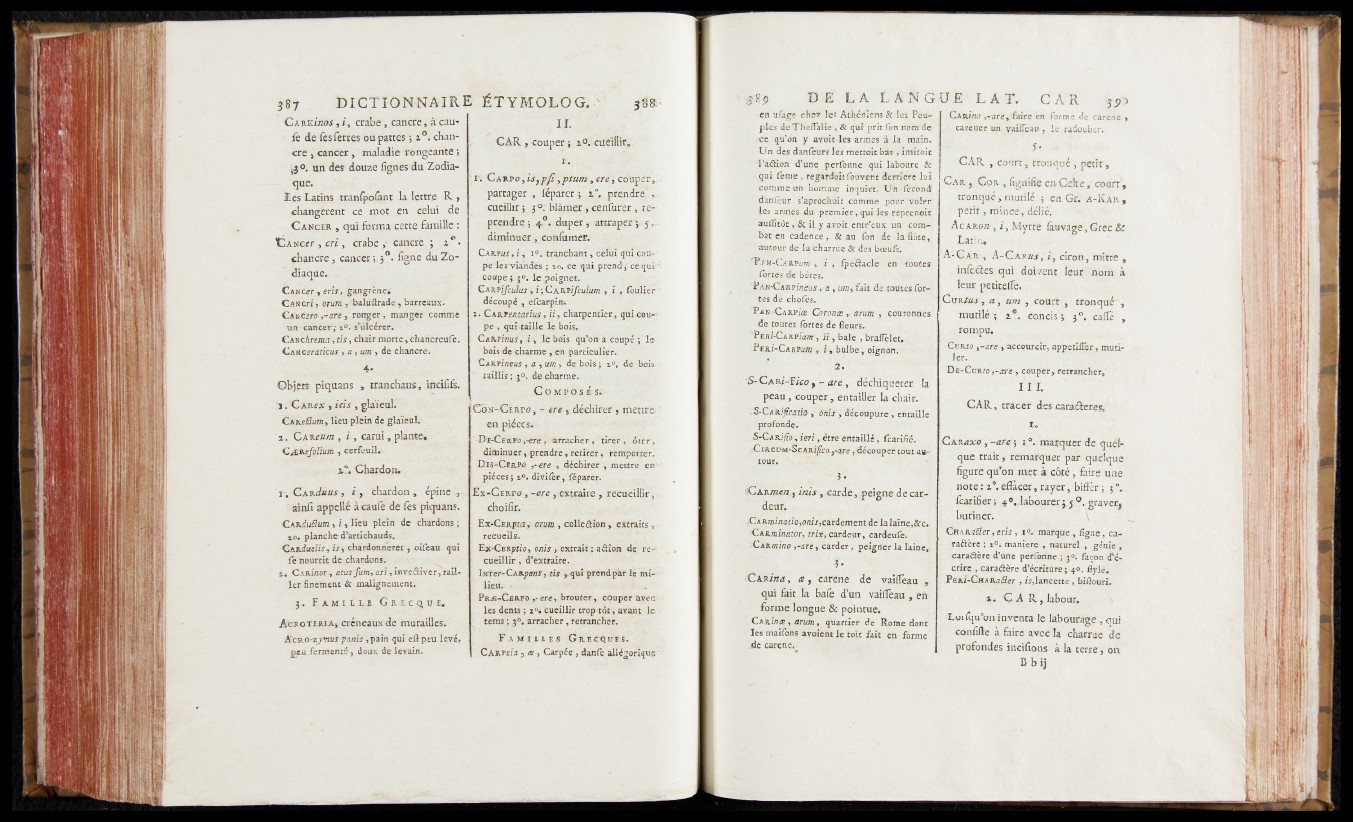 387 DICTIONNAIRE ÉTYMOLOG. 388
CARKinos, i, crabe, cancre, à cau-
ſe de ſes ſerres ou pattes ; 2°. chan-
cre, cancer, maladie rongeante ;
3°. un des douze ſignes du Zodia-
que.
Les Latins tranſpoſant la lettre R,
changerent ce mot en celui de
CANCER, qui forma cette famille :
CANCer, cri, crabe, cancre ; 2°.
chancre, cancer ; 3°. ſigne du Zo-
diaque.
CANCer, eris, gangrène.
CANCri, orum, baluſtrade, barreaux.
CANCero,-are, ronger, manger comme
un cancer ; 2°. s'ulcérer.
CANChrema, tis, chair morte, chancreuſe.
CANCeraticus, a, um, de chancre.
4.
Objets piquans, tranchans, inciſifs.
1. CARex, icis, glaïeul.
CAReétum, lieu plein de glaïeul.
2. CAReum, i, carui, plante.
CÆREfolium, cerfeuil.
2°. Chardon.
1. CARduus, i, chardon, épine,
ainſi appellé à cauſe de ſes piquans.
CARduétum, i, lieu plein de chardons ;
2°. planche d'artichauds.
CARduelis, is, chardonneret, oiſeau qui
ſe nourrit de chardons.
2. CARinor, atus ſum, ari, invectiver, rail-
ler finement & malignement.
3. FAMILLE GRECQUE.
ACROTERIA, créneaux de murailles.
ACRO-zymus panis, pain qui eſt peu levé,
peu fermenté, doux de levain.
II.
CAR, couper ; 2°. cueillir.
1.
1. CARPO, is, pſi, ptum, ere, couper,
partager, ſéparer ; 2°. prendre,
cueillir ; 3°. blâmer, cenſurer, re-
prendre ; 4°. duper, attraper ; 5.
diminuer, conſumer.
CARPus, i, 1°. tranchant, celui qui cou-
pe les viandes ; 2°. ce qui prend, ce qui
coupe ; 3°. le poignet.
CARPiſculus, i ; CARPiſculum, i, ſoulier
découpé, eſcarpin.
2. CARPentarius, ii, charpentier, qui cou-
pe, qui taille le bois.
CARPinus, i, le bois qu'on a coupé ; le
bois de charme, en particulier.
CARPineus, a, um, de bois ; 2°. de bois
taillis ; 3°. de charme.
COMPOSÉS.
CON-CERPO, - ere, déchirer, mettre
en piéces.
DE-CERPO,-ere, arracher, tirer, ôter,
diminuer, prendre, retirer, remporter.
DIS-CERPO,-ere, déchirer, mettre en
piéces ; 2°. diviſer, ſéparer.
EX-CERPO, -ere, extraire, recueillir,
choiſir.
EX-CERPTA, orum, collection, extraits,
recueils.
EX-CERPtio, onis, extrait : action de re-
cueillir, d'extraire.
INTER-CARPens, tis, qui prend par le mi-
lieu.
PRÆ-CERPO,-ere, brouter, couper avec
les dents ; 2°. cueillir trop tôt, avant le
tems ; 3°. arracher, retrancher.
FAMILLES GRECQUES.
CARPeia, æ, Carpée, danſe allégorique
389 DE LA LANGUE LAT. CAR 390
en uſage chez les Athéniens & les Peu-
ples de Theſſalie, & qui prit ſon nom de
ce qu'on y avoit les armes à la main.
Un des danſeurs les mettoit bas, imitoit
l'action d'une perſonne qui laboure &
qui ſeme, regardoit ſouvent derriere lui
comme un homme inquiet. Un ſecond
danſeur s'aprochoit comme pour voler
les armes du premier, qui les reprenoit
auſſitôt, & il y avoit entr'eux un com-
bat en cadence, & au ſon de la flûte,
autour de la charrue & des bœufs.
PAN-CARPum, i, ſpectacle en toutes
ſortes de bêtes.
PAN-CARPineus, a, um, fait de toutes ſor-
tes de choſes.
PAN-CARPiæ Coronæ, arum, couronnes
de toutes ſortes de fleurs.
PERI-CARPium, ii, bale, braſſelet.
PERI-CARPum, i, bulbe, oignon.
2.
S-CARi-Fico, - are, déchiqueter la
peau, couper, entailler la chair.
S-CARificatio, onis, découpure, entaille
profonde.
S-CARifio, ieri, être entaillé, ſcarifié.
CIRCUM-SCARifico,-are, découper tout au-
tour.
3.
CARmen, inis, carde, peigne de car-
deur.
CARminatio, onis, cardement de la laine, &c.
CARminator, trix, cardeur, cardeuſe.
CARmino,-are, carder, peigner la laine.
3.
CARina, æ, carene de vaiſſeau,
qui fait la baſe d'un vaiſſeau, en
forme longue & pointue.
CARinæ, arum, quartier de Rome dont
les maiſons avoient le toit fait en forme
de carene.
CARino,-are, faire en forme de carene,
carener un vaiſſeau, le radouber.
5.
CAR, court, tronqué, petit,
CAR, COR, ſignifie en Celte, court,
tronqué, mutilé ; en Gr. A-KAR,
petit, mince, délié.
ACARon, i, Myrte ſauvage, Grec &
Latin.
A-CAR, A-CARus, i, ciron, mitre,
inſectes qui doivent leur nom à
leur petiteſſe.
CURtus, a, um, court, tronqué,
mutilé ; 2°. concis ; 3°. caſſé,
rompu.
CURto,-are, accourcir, appetiſſer, muti-
ler.
DE-CURto,-are, couper, retrancher.
III.
CAR, tracer des caracteres.
1.
CARaxo, -are ; 1°. marquer de quel-
que trait, remarquer par quelque
figure qu'on met à côté, faire une
note : 2°. effacer, rayer, biffer ; 3°.
ſcarifier ; 4°. labourer ; 5°. graver,
buriner.
CHARacter, eris, 1°. marque, ſigne, ca-
ractère ; 2°. maniere, naturel, génie,
caractère d'une perſonne ; 3°. façon d'é-
crire, caractère d'écriture ; 4°. ſtyle.
PERI-CHARacter, is, lancette, biſtouri.
2. CAR, labour.
Lorſqu'on inventa le labourage, qui
conſiſte à faire avec la charrue de
profondes inciſions à la terre, on
B b ij